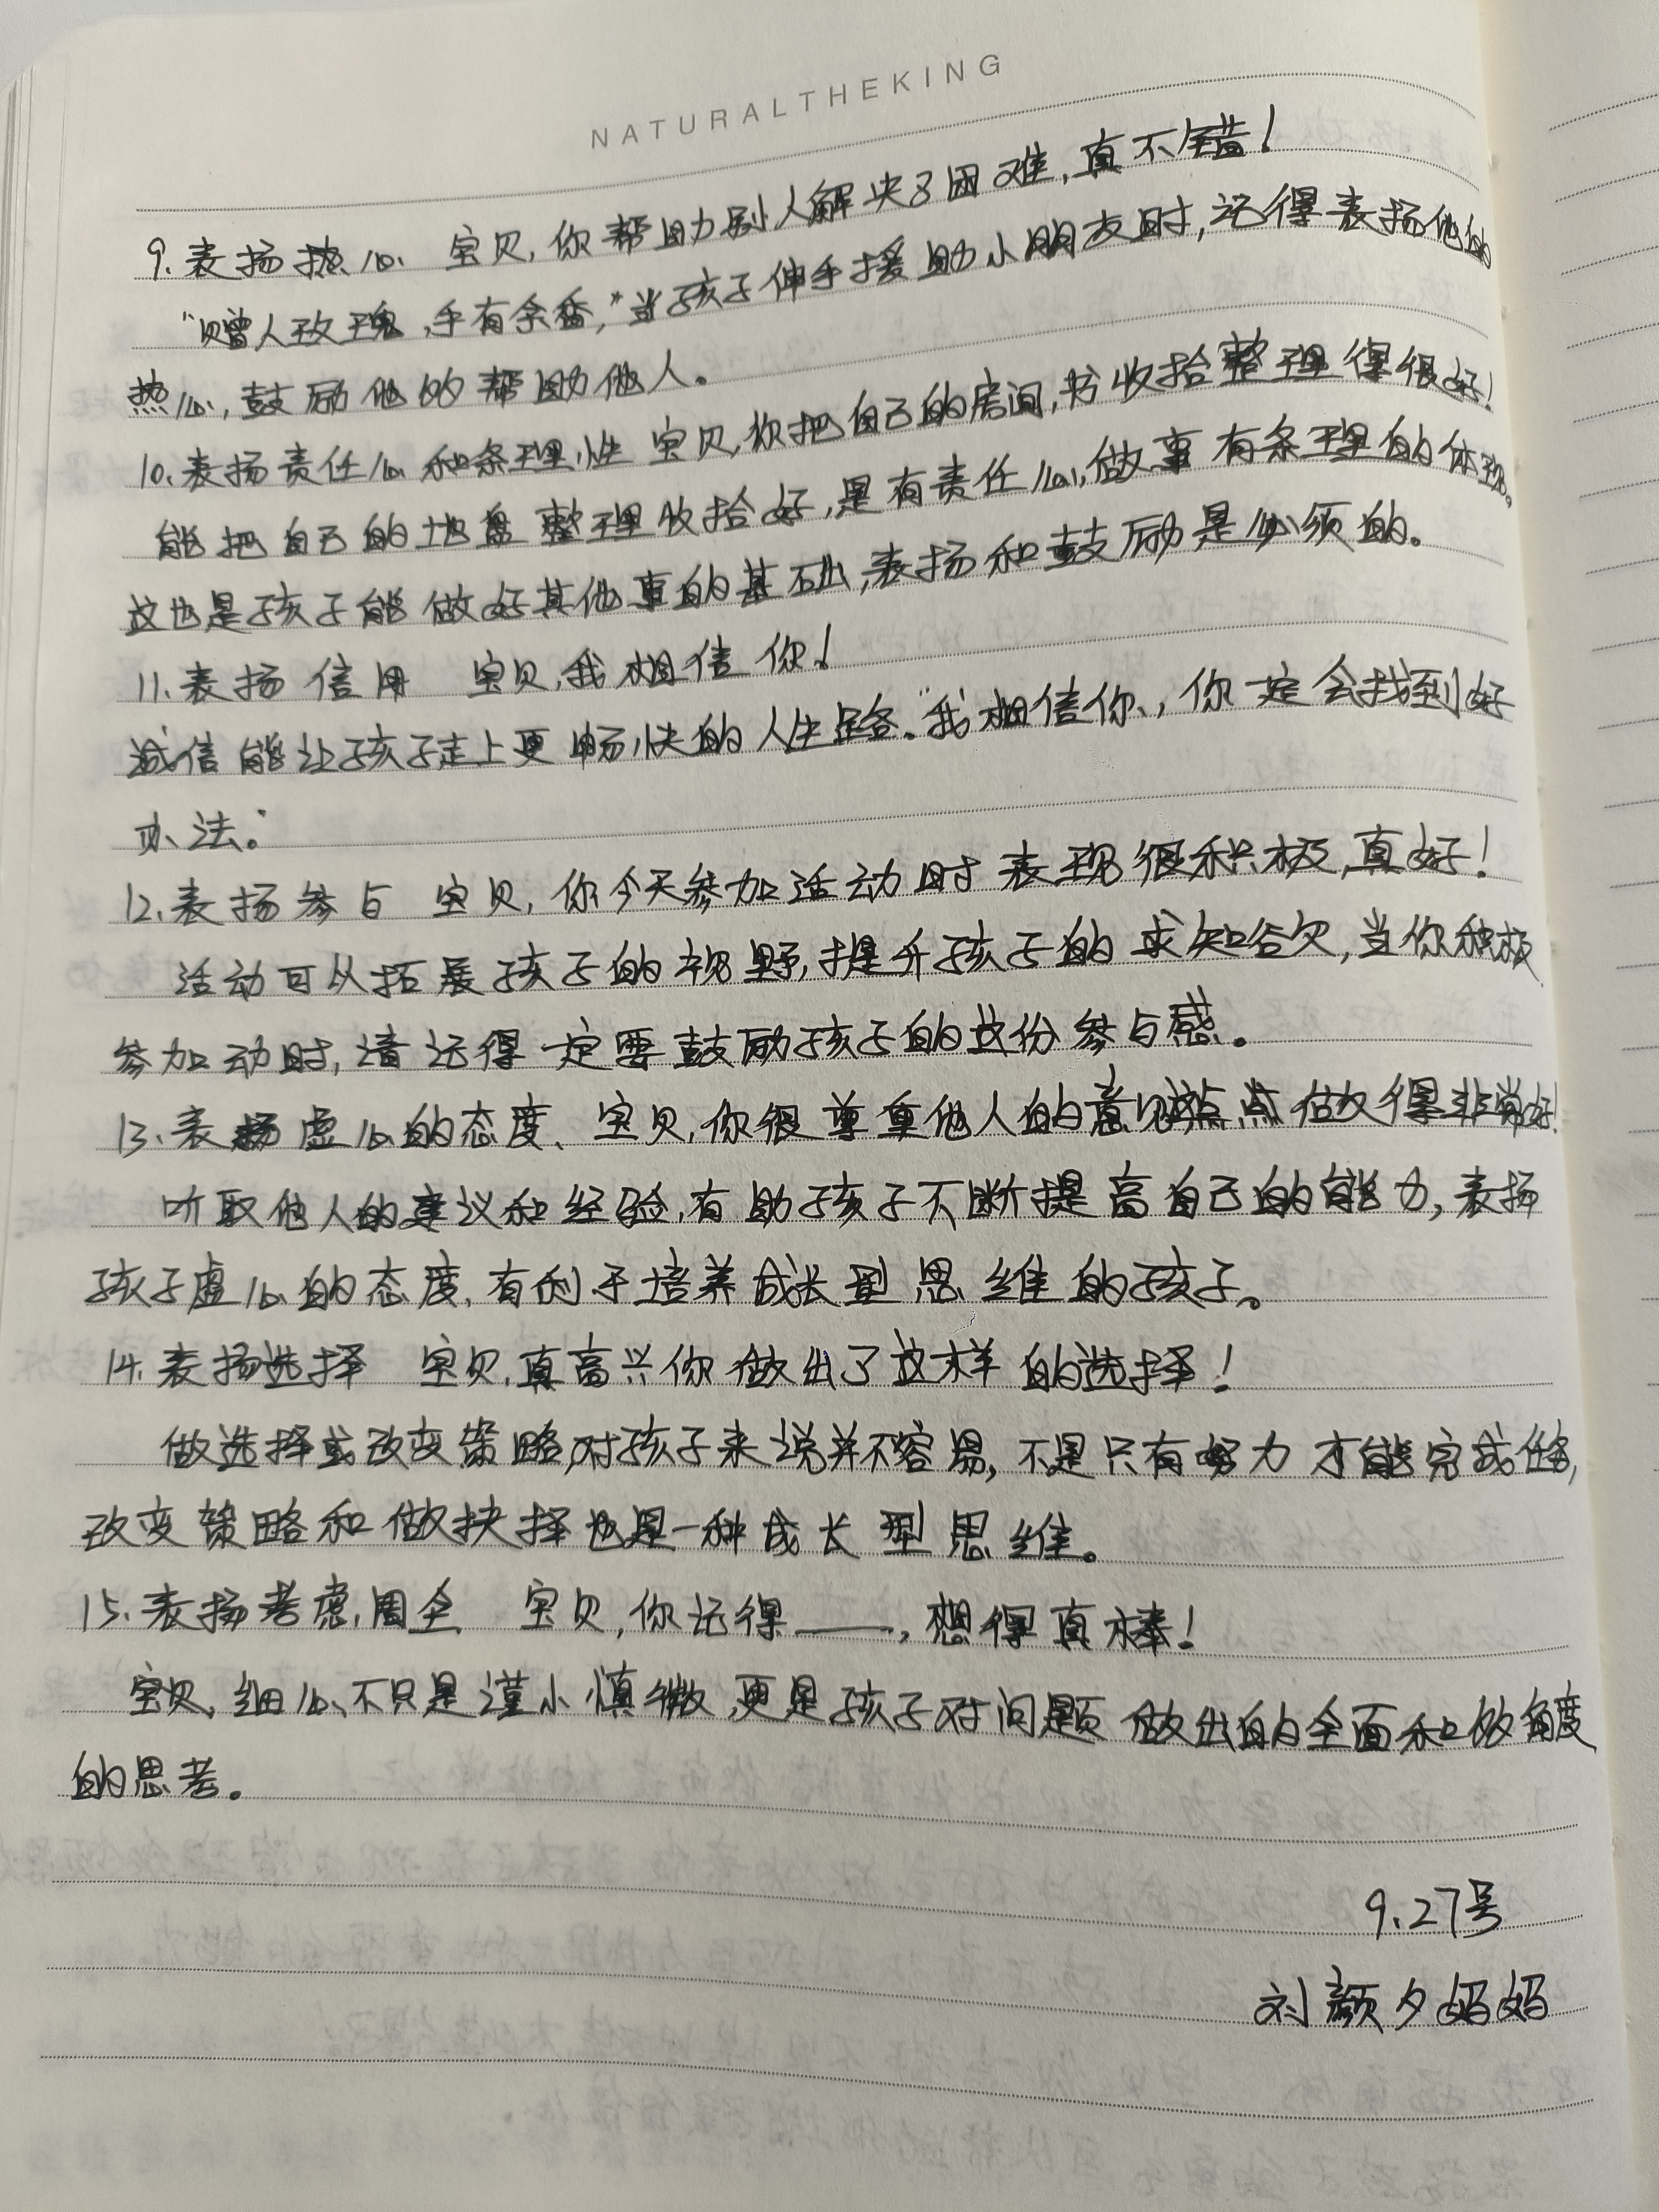 NATURALTHEKING
9.表扬热心 宝贝,你帮助别人解决了困难,真不错!
“赠人玫瑰,手有余香,”当孩子伸手援助小朋友时,记得表扬他的
热心,鼓励他的帮助他人。
10.表扬责任心和条理性 宝贝,你把自己的房间,书收拾整理得很好!
能把自己的地盘整理收拾好,是有责任心,做事有条理的体现。
这也是孩子能做好其他事的基础,表扬和鼓励是必须的。
11.表扬信用 宝贝,我相信你!
诚信能让孩子走上更畅快的人生路。“我相信你,你一定会找到好
办法。”
12.表扬参与 宝贝,你今天参加活动时表现很积极,真好!
活动可以拓展孩子的视野,提升孩子的求知欲,当你积极
参加动时,请记得一定要鼓励孩子的这份参与感。
13.表扬虚心的态度、宝贝,你很尊重他人的意见,这点做得非常好!
听取他人的建议和经验,有助孩子不断提高自己的能力,表扬
孩子虚心的态度,有利于培养成长型思维的孩子。
14.表扬选择 宝贝,真高兴你做出了这样的选择!
做选择或改变策略,对孩子来说并不容易,不是只有努力才能完成任务,
改变策略和做抉择也是一种成长型思维。
15.表扬考虑,周全 宝贝,你记得____,想得真棒!
宝贝,细心、不只是谨小慎微,更是孩子对问题做出的全面和角度
的思考。
9.27号
刘颜夕妈妈